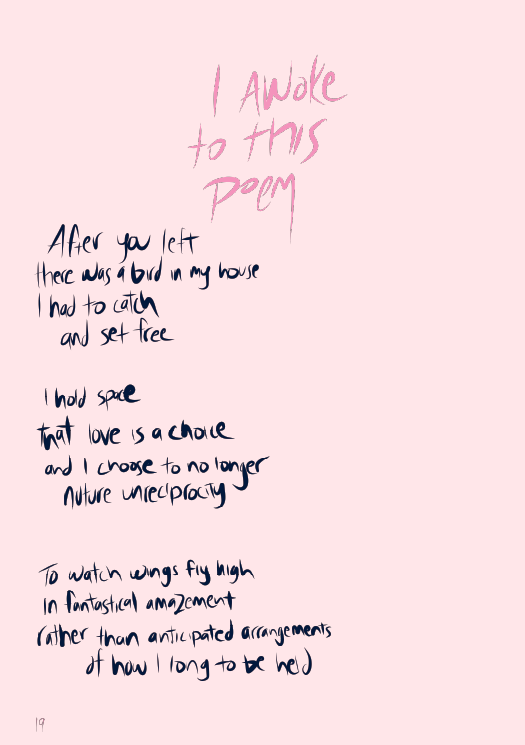 I AWOKE
to this
poem
After you left
there was a bird in my house
I had to catch
and set free
I hold space
that love is a choice
and I choose to no longer
nuture unreciprocity
To watch wings fly high
In fantastical amazement
rather than anticipated arrangements
of how I long to be held
19